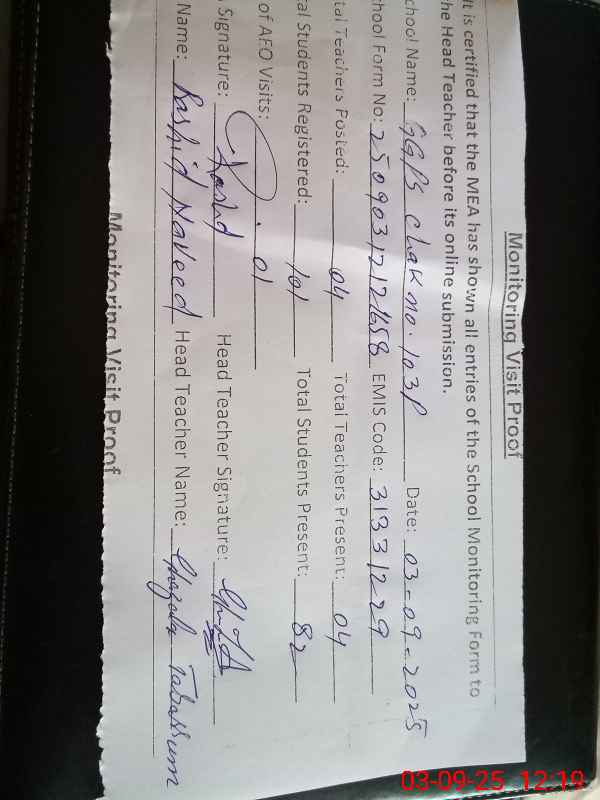 Monitoring Visit Proof
It is certified that the MEA has shown all entries of the School Monitoring Form to
he Head Teacher before its online submission.
chool Name: GGPS chak no. 103P Date: 03-09-2025
chool Form No: 25090312121658 EMIS Code: 31331229
tal Teachers Posted: 04 Total Teachers Present: 04
al Students Registered: 101 Total Students Present: 82
of AEO Visits: 01
Signature: Rashid Head Teacher Signature:
Name: Rashid Naveed Head Teacher Name: Ghazala Tabassum
Monitoring Visit Proof
03-09-25 12:19